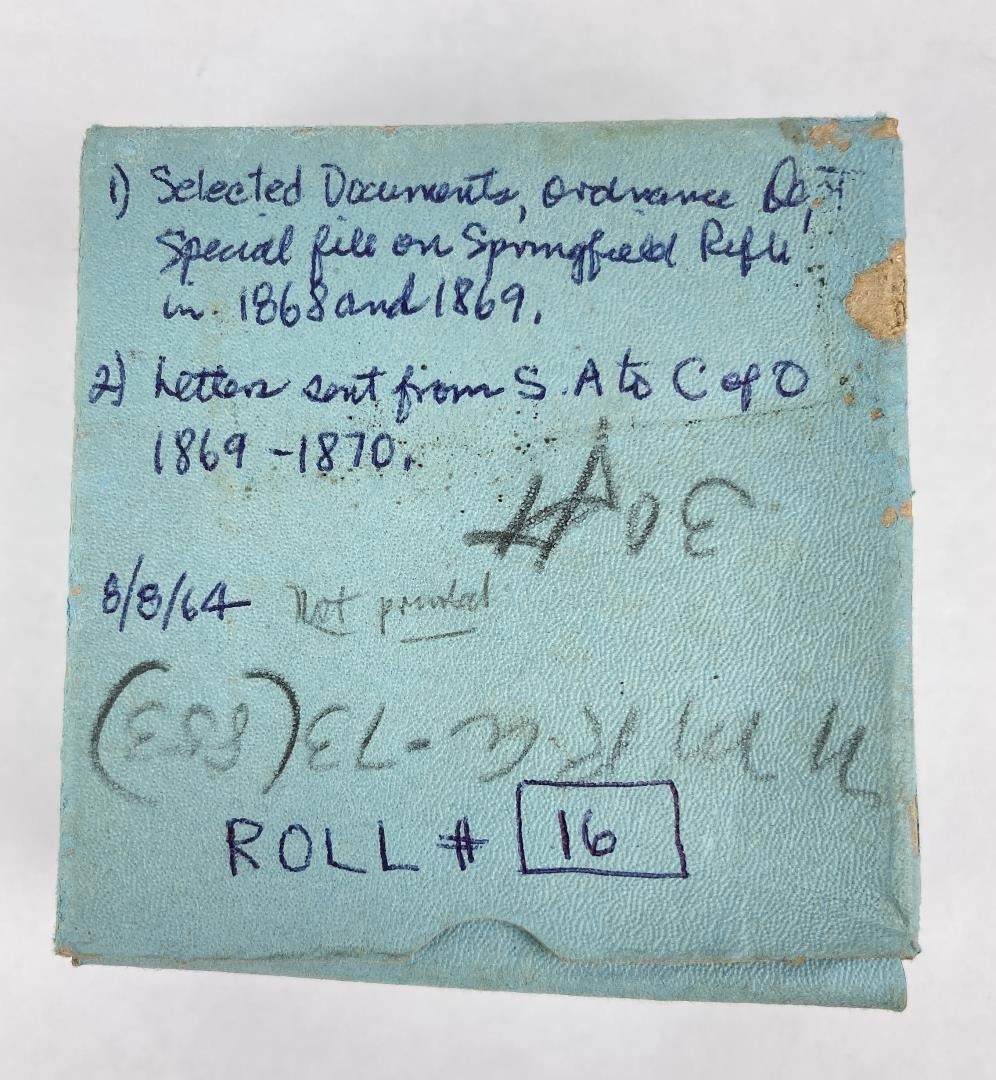 1) Selected Documents, Ordnance Dept
Special file on Springfield Rifle
in 1868 and 1869.
2) Letters sent from S.A to C of O
1869-1870.
30
8/8/64 Not printed
73 (853)
ROLL # 16